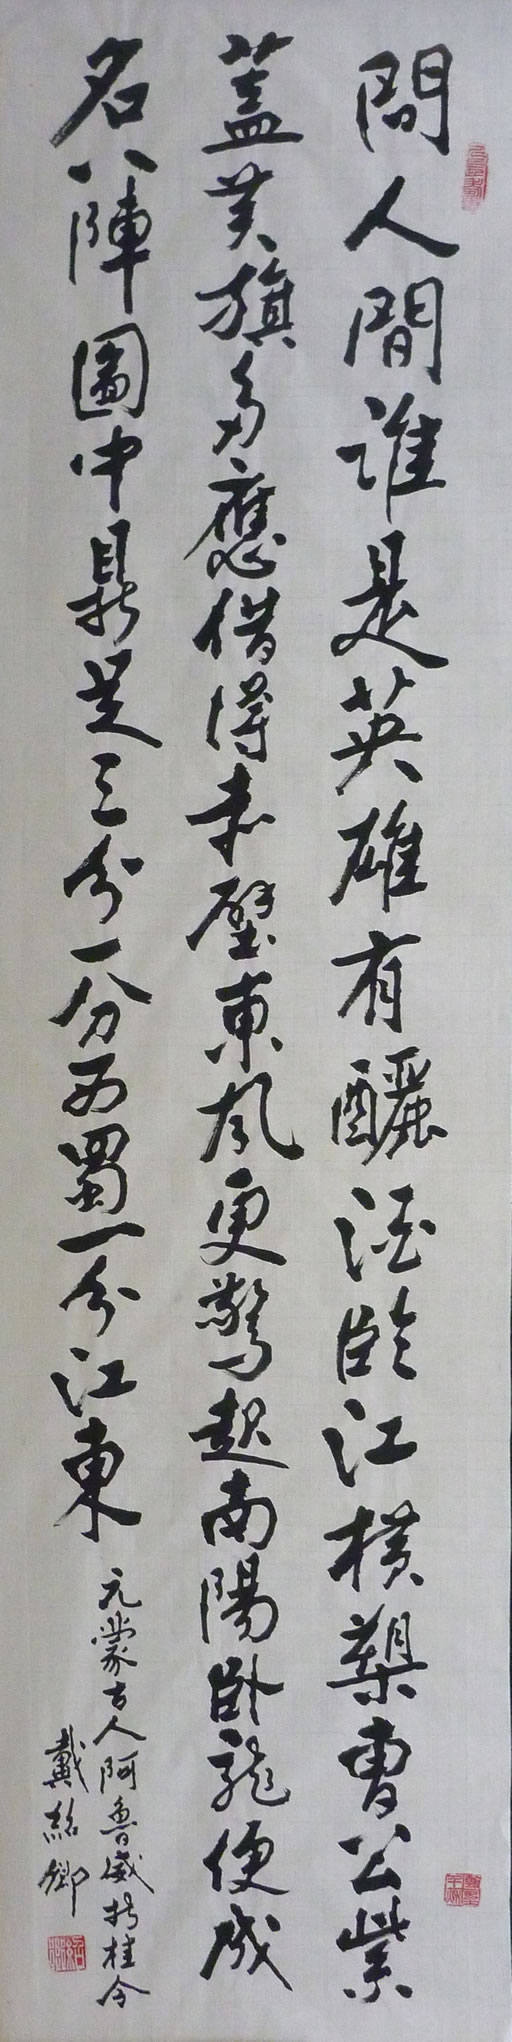 問人間誰是英雄有釃酒臨江橫槊曹公紫
蓋黃旗多應借得赤壁東風更驚起南陽卧龍便成
名八陣圖中鼎足三分一分西蜀一分江東
元蒙古人阿魯威折桂令
戴紹卿